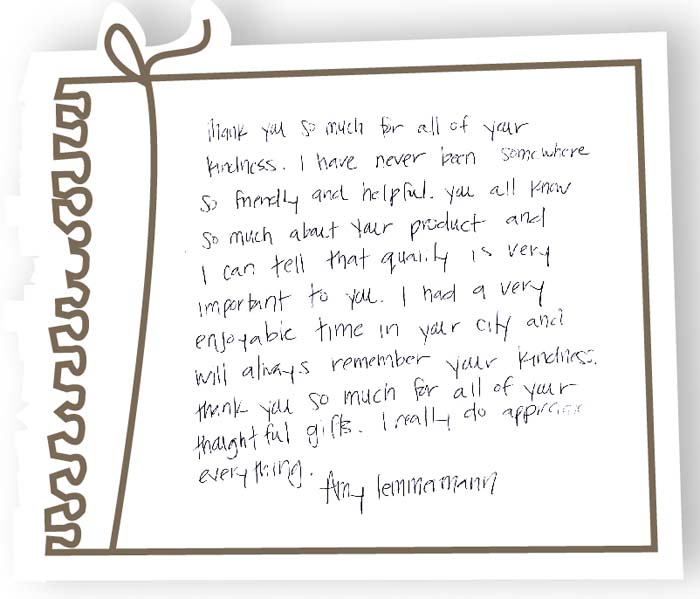 Thank you so much for all of your
kindness. I have never been somewhere
so friendly and helpful. you all know
so much about your product and
I can tell that quality is very
important to you. I had a very
enjoyable time in your city and
will always remember your kindness.
thank you so much for all of your
thoughtful gifts. I really do appreciate
everything.
Amy Lemmermann